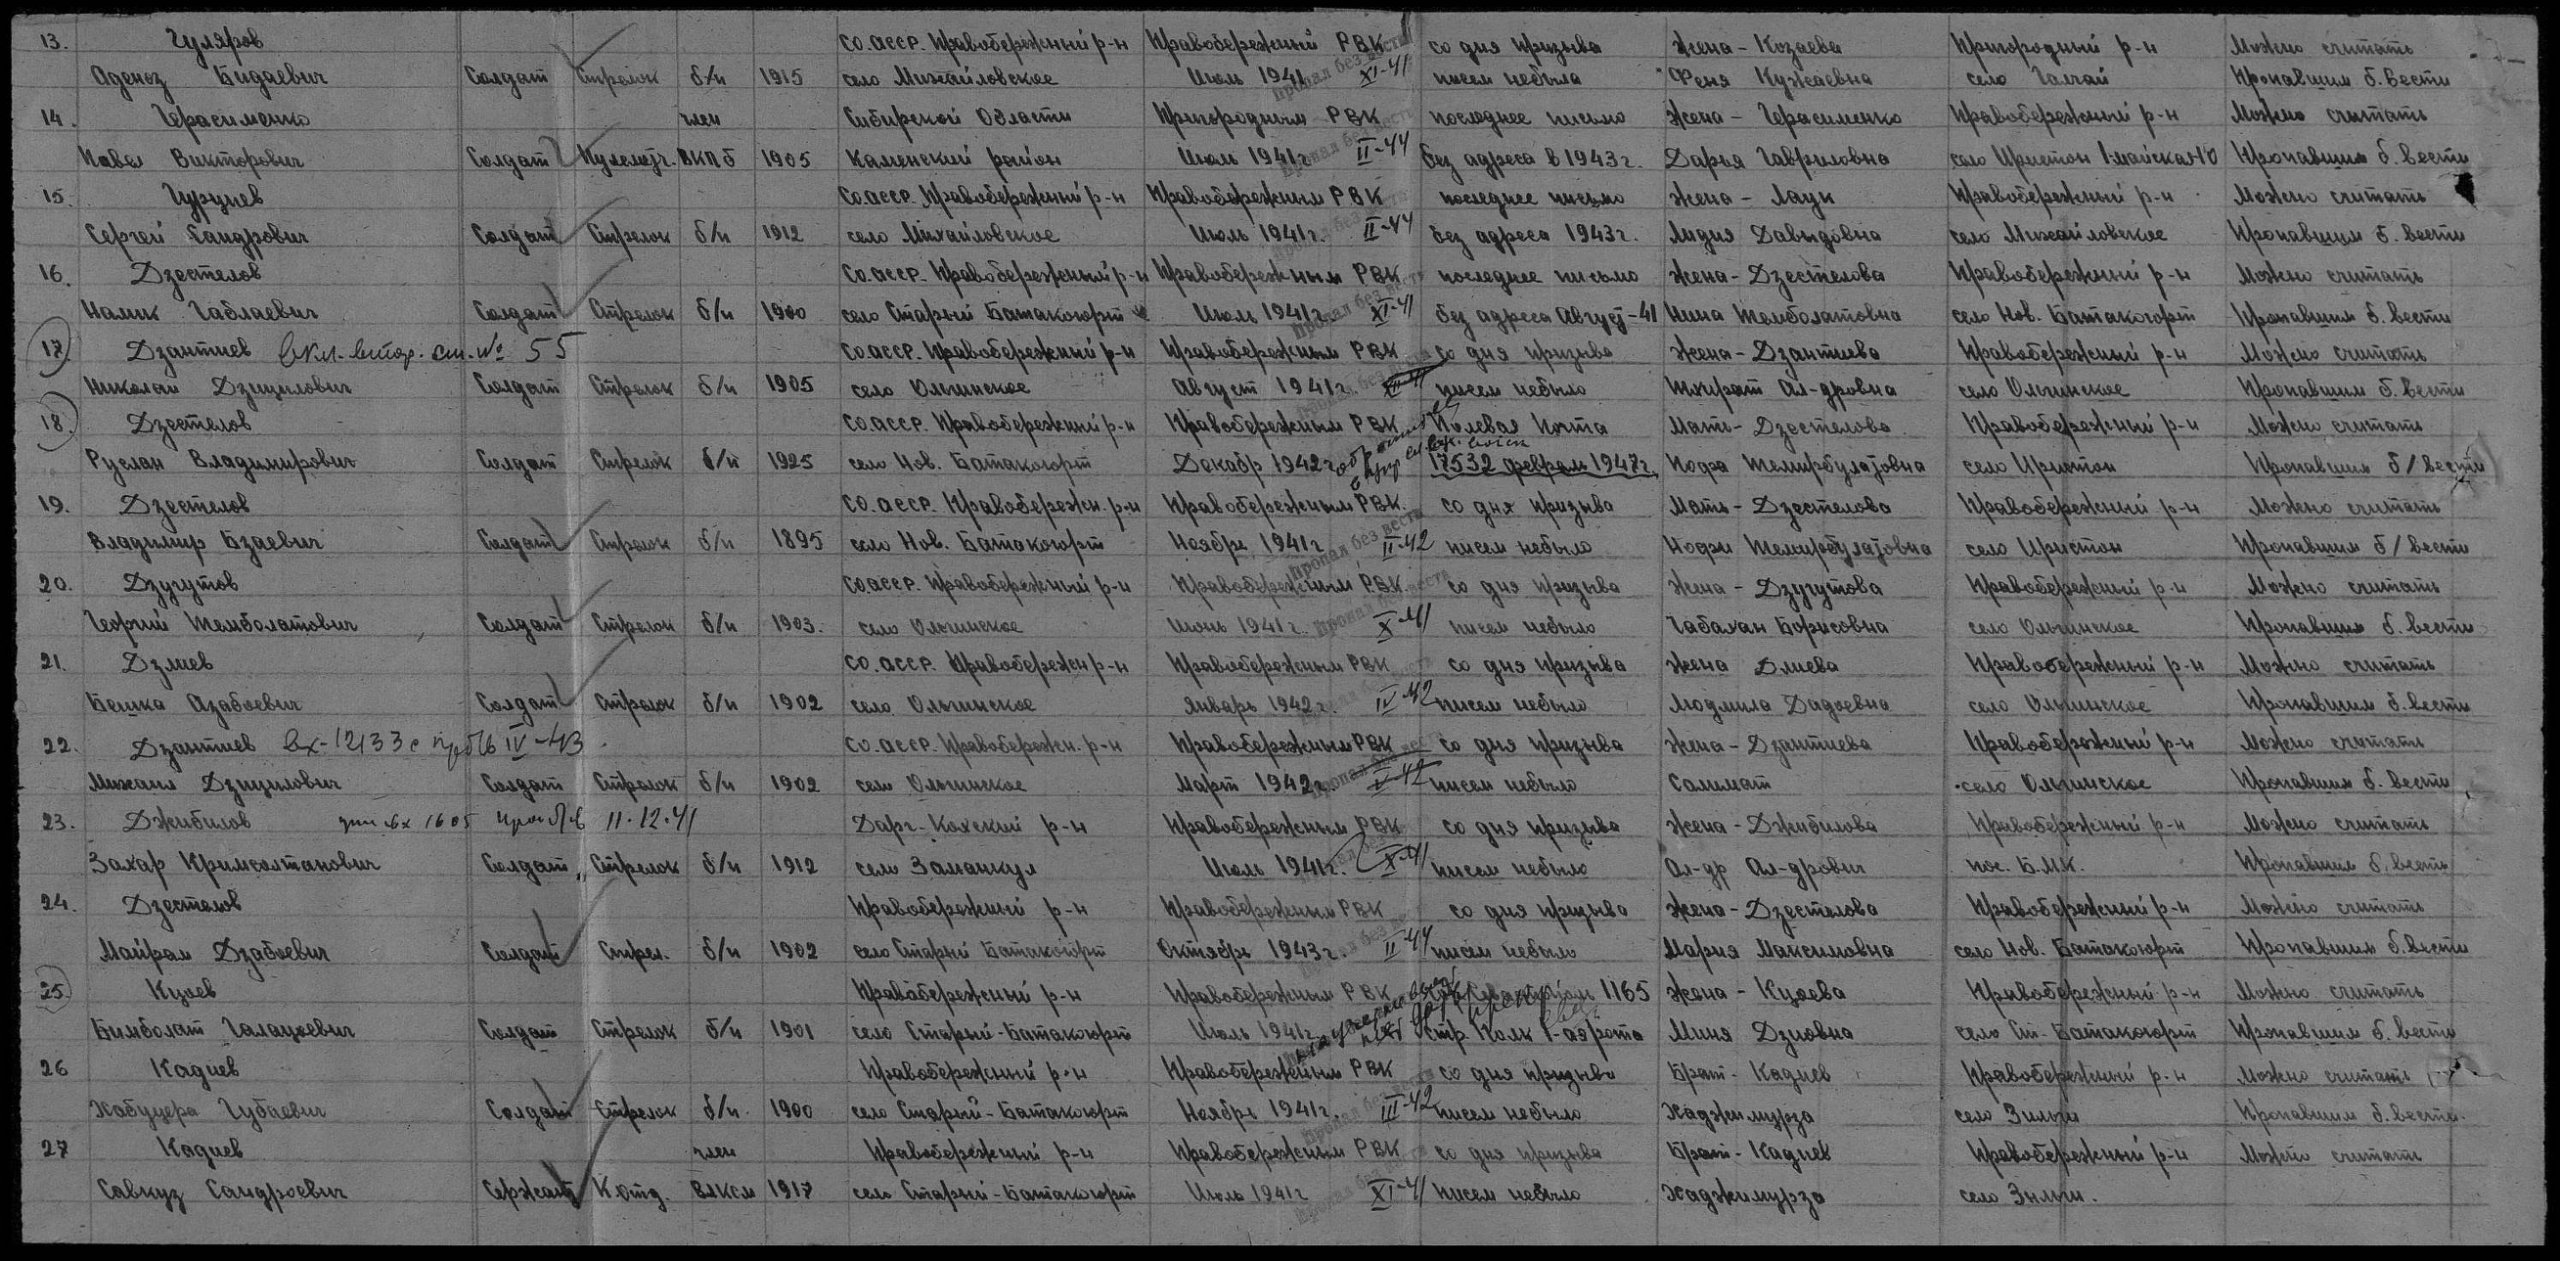 13. Гуляров СО.АССР. Правобережный р-н Правобережный РВК со дня призыва Жена - Козаева Пригородный р-н Можно считать
Бидаевич Солдат Стрелок б/п 1915 село Михайловское Июль 1941 XI-41 писем небыло Феня село Можно Пропавшим б. вести
14. Герасименко член Сибирской Области Пригородным РВК последнее письмо Жена - Герасименко Правобережный р-н Можно считать
Павел Викторович Солдат Пулеметч. ВКПб 1905 Каменский район Июль 1941г. II-44 без адреса в 1943г. Дарья Гавриловна село Иристон Пропавшим б. вести
15. Гуриев СО.АССР. Правобережный р-н Правобережным РВК последнее письмо Жена - Правобережный р-н Можно считать
Сергей Сандрович Солдат Стрелок б/п 1912 село Михайловское Июль 1941г. II-44 без адреса 1943г. Лидия Давыдовна село Михайловское Пропавшим б. вести
16. Дзестелов СО.АССР. Правобережный р-н Правобережным РВК последнее письмо Жена - Дзестелова Правобережный р-н Можно считать
Налик Габлаевич Солдат Стрелок б/п 1900 село Старый Батакоюрт Июль 1941г. XI-41 без адреса Август-41 Нина Темболатовна село Нов. Батакоюрт Пропавшим б. вести
17. Дзантиев № 55 СО.АССР. Правобережный р-н Правобережным РВК со дня призыва Жена - Дзантиева Правобережный р-н Можно считать
Николай Дзицилович Солдат Стрелок б/п 1905 село Ольгинское Август 1941г. писем небыло Ал-дровна село Ольгинское Пропавшим б. вести
18. Дзестелов СО.АССР. Правобережный р-н Правобережным РВК Полевая Почта Мать - Дзестелова Правобережный р-н Можно считать
Руслан Владимирович Солдат Стрелок б/п 1925 село Нов. Батакоюрт Декабр 1942г. 17532 февраль 1947г. Темирбулатовна село Иристон Пропавшим б/вести
19. Дзестелов СО.АССР. Правобережн. р-н Правобережным РВК со дня призыва Мать - Дзестелова Правобережный р-н Можно считать
Владимир Бзаевич Солдат Стрелок б/п 1895 село Нов. Батакоюрт Ноябрь 1941г. II-42 писем небыло Темирбулатовна село Иристон Пропавшим б/вести
20. Дзугутов СО.АССР. Правобережный р-н Правобережным РВК со дня призыва Жена - Дзугутова Правобережный р-н Можно считать
Георгий Темболатович Солдат Стрелок б/п 1903. село Ольгинское Июнь 1941г. X-41 писем небыло Борисовна село Ольгинское Пропавшим б. вести
21. Дзлиев СО.АССР. Правобережн р-н Правобережным РВК со дня призыва Жена Длиева Правобережный р-н Можно считать
Бешка Азабоевич Солдат Стрелок б/п 1902 село Ольгинское Январь 1942г. IV-42 писем небыло Людмила Дадоевна село Ольгинское Пропавшим б. вести
22. Дзантиев вх-12133с IV-43 СО.АССР. Правобережн. р-н Правобережным РВК со дня призыва Жена - Дзантиева Правобережный р-н Можно считать
Михаил Дзицилович Солдат Стрелок б/п 1902 село Ольгинское Март 1942г. писем небыло Салимат село Ольгинское Пропавшим б. вести
23. Джибилов вх 1605 проп б/в 11.12.41 Дарг-Кохский р-н Правобережным РВК со дня призыва Жена - Джибилова Правобережный р-н Можно считать
Захар Кримсолтанович Солдат Стрелок б/п 1912 село Заманкул Июль 1941г. X-41 писем небыло Ал-др Ал-дрович пос. Б.М.К. Пропавшим б. вести
24. Дзестелов Правобережный р-н Правобережным РВК со дня призыва Жена - Дзестелова Правобережный р-н Можно считать
Майрам Дзабоевич Солдат Стрел. б/п 1902 село Старый Батакоюрт Октябрь 1943г. II-44 писем небыло Мария Максимовна село Нов. Батакоюрт Пропавшим б. вести
25. Кцоев Правобережный р-н Правобережным РВК 1165 Жена - Кцоева Правобережный р-н Можно считать
Бимболат Галацоевич Солдат Стрелок б/п 1901 село Старый-Батакоюрт Июль 1941г. Стр Полк 1-ая рота Миня Дзиовна село Ст-Батакоюрт Пропавшим б. вести
26 Кадиев Правобережный р-н Правобережным РВК со дня призыва Брат - Кадиев Правобережный р-н Можно считать
Губаевич Солдат Стрелок б/п 1900 село Старый-Батакоюрт Ноябрь 1941г. III-42 писем небыло Хаджимурза село Зильги Пропавшим б. вести.
27 Кадиев член Правобережный р-н Правобережным РВК со дня призыва Брат - Кадиев Правобережный р-н Можно считать
Савкуз Сандроевич Сержант К.отд. ВЛКСМ 1917 село Старый-Батакоюрт Июль 1941г XI-41 писем небыло Хаджимурза село Зильги.